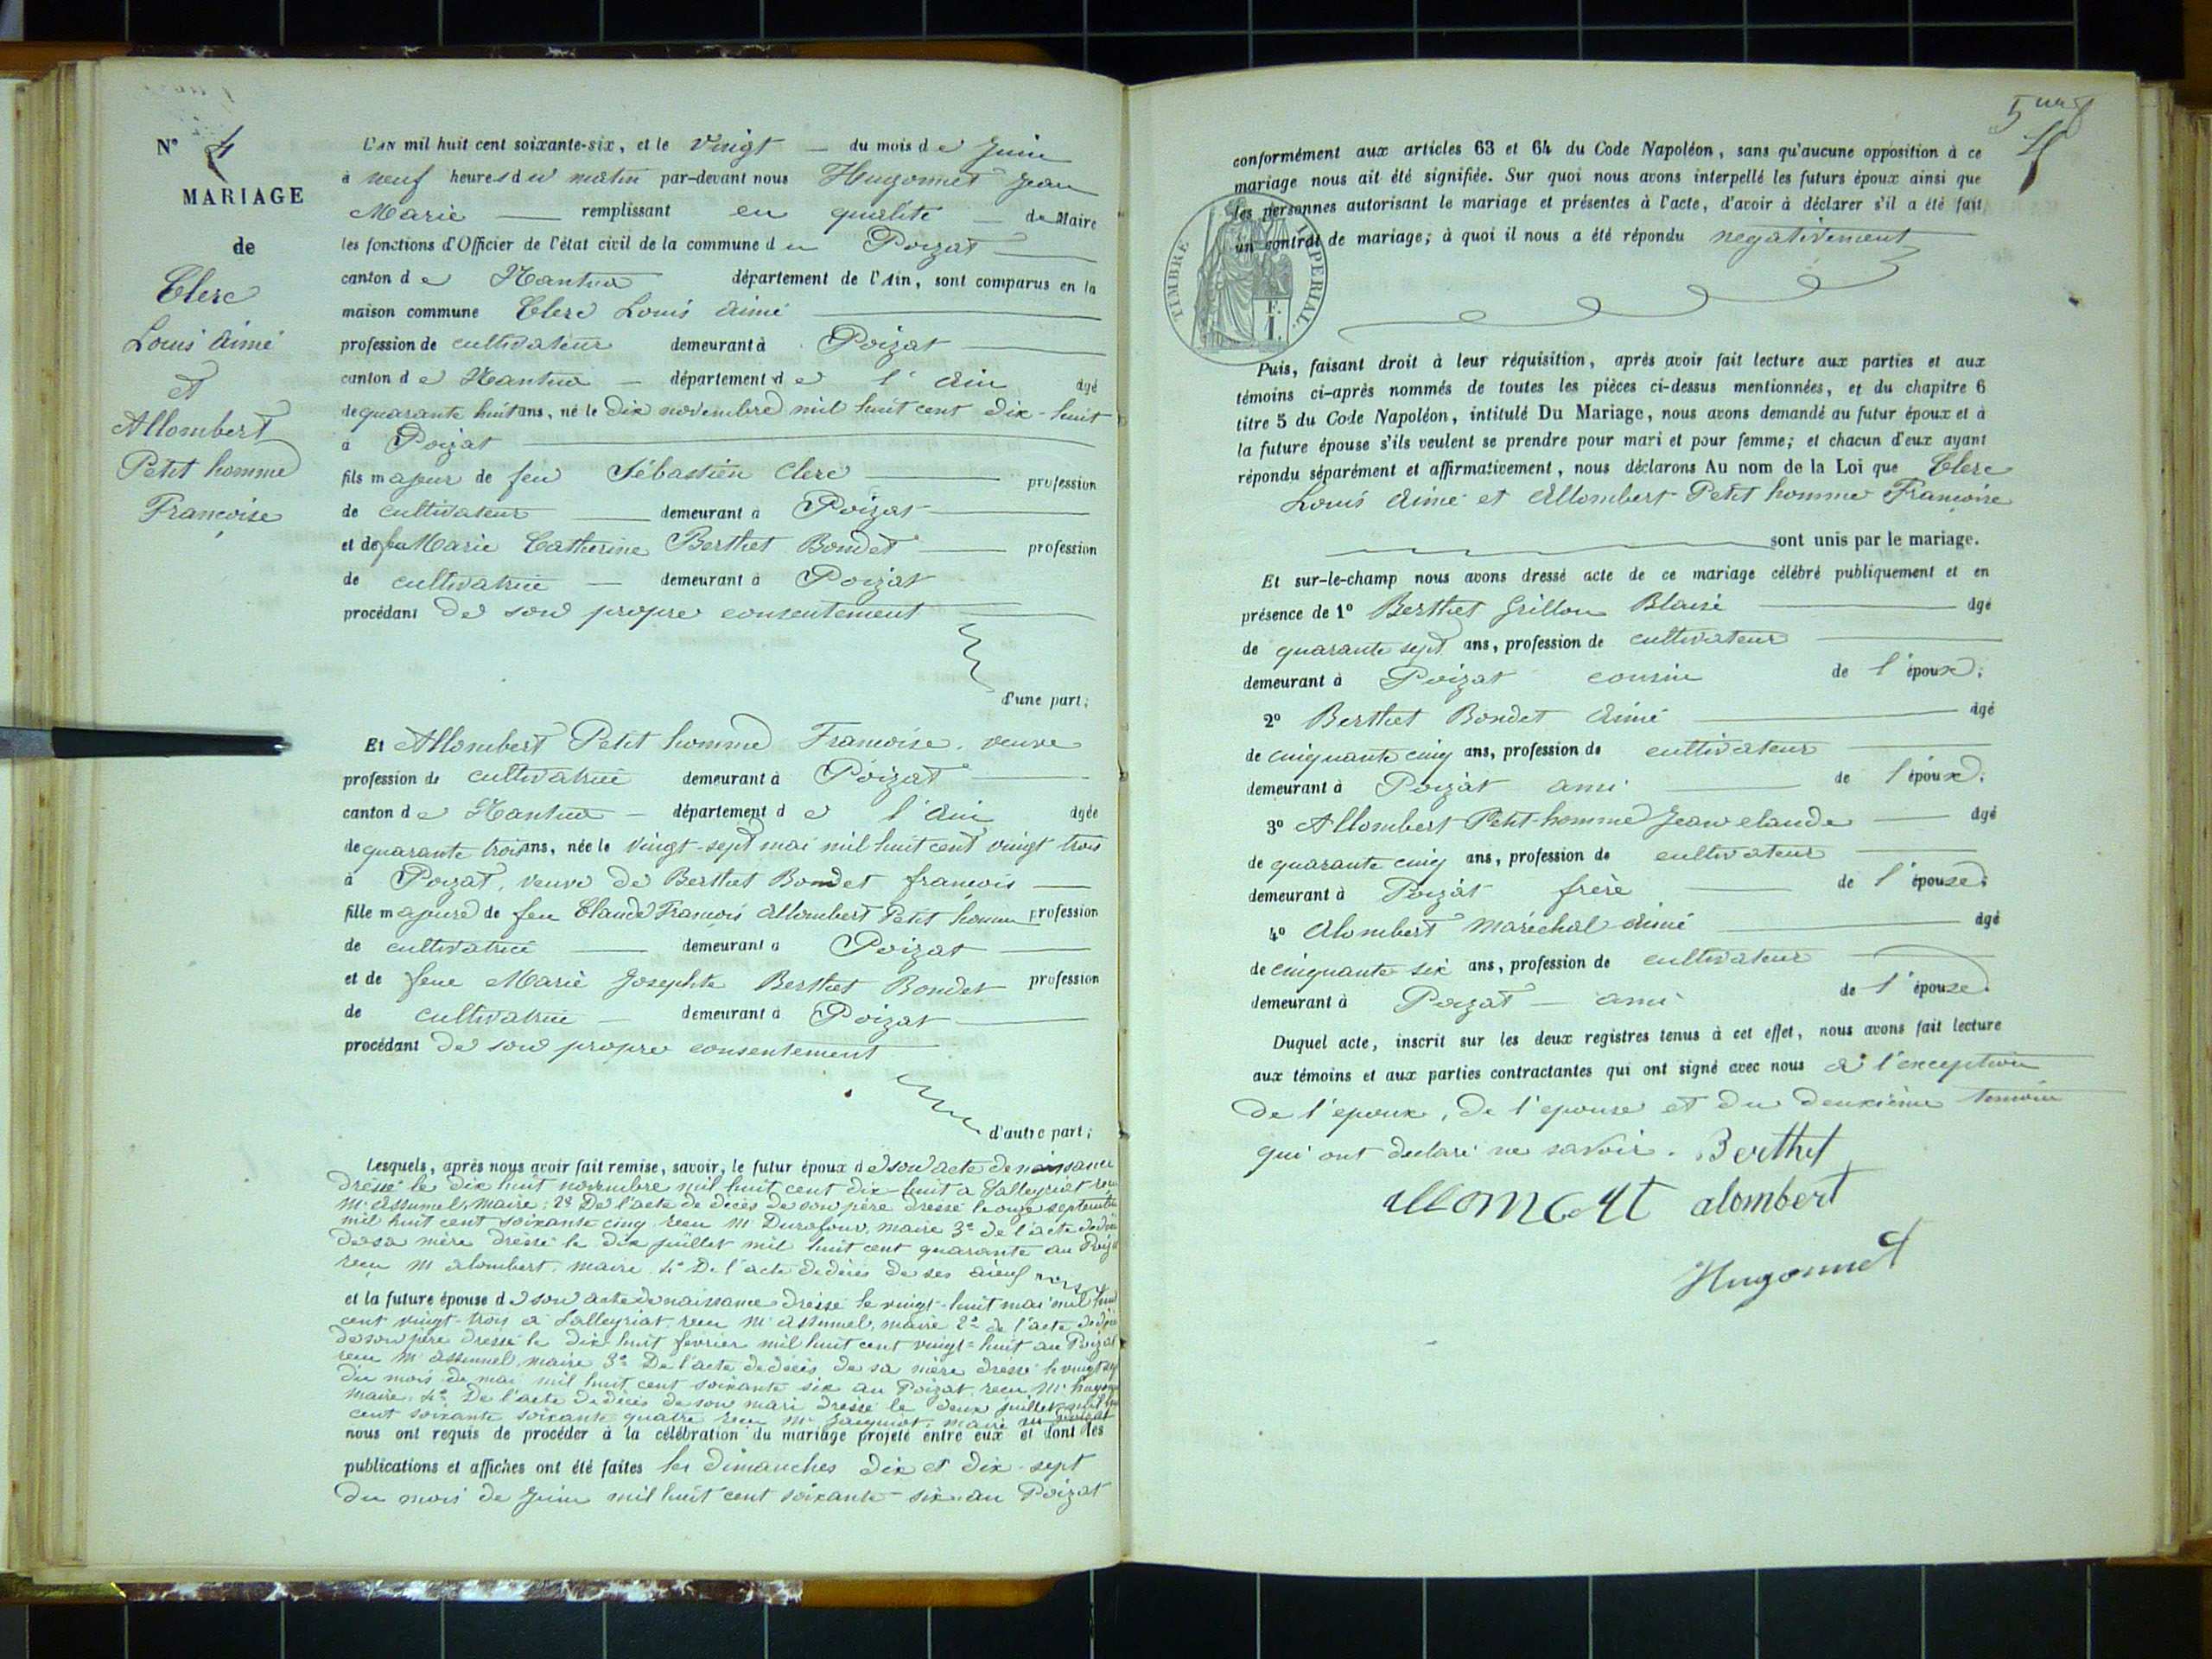 N° 4
MARIAGE
de
Clerc
Louis Aimé
et
Allombert
Petit homme
Francoise
L'AN mil huit cent soixante-six, et le vingt du mois de Juin
à neuf heures du matin par-devant nous Hugonnet Jean
Marie remplissant en qualité de Maire
les fonctions d'Officier de l'état civil de la commune du Poizat
canton de Nantua département de l'Ain, sont comparus en la
maison commune Clerc Louis Aimé
profession de cultivateur demeurant à Poizat
canton de Nantua département de l'Ain âgé
de quarante huit ans, né le dix novembre mil huit cent dix-huit
à Poizat
fils majeur de feu Sébastien Clerc profession
de cultivateur demeurant à Poizat
et de feu Marie Catherine Berthet Bondet profession
de cultivatrice demeurant à Poizat
procédant de son propre consentement
d'une part;
Et Allombert Petit homme Francoise, veuve
profession de cultivatrice demeurant à Poizat
canton de Nantua département de l'Ain âgée
de quarante trois ans, née le vingt-sept mai mil huit cent vingt trois
à Poizat, veuve de Berthet Bondet francois
fille majeure de feu Claude François Allombert Petit homme profession
de cultivatrice demeurant à Poizat
et de feue Marie Josephte Berthet Bondet profession
de cultivatrice demeurant à Poizat
procédant de son propre consentement
d'autre part;
Lesquels, après nous avoir fait remise, savoir, le futur époux de son acte de naissance
dressé le dix huit novembre mil huit cent dix-huit a Lalleyriat reçu
Mr Assumel, maire; 2° De l'acte de décès de son père dressé le onze septembre
mil huit cent soixante cinq reçu Mr Durafour, maire 3° de l'acte de décès
de sa mère dressé le dix juillet mil huit cent quarante au Poizat
reçu M alombert, maire, 4° De l'acte de décès de ses aïeuls
et la future épouse de son acte de naissance dressé le vingt-huit mai mil huit
cent vingt-trois à Lalleyriat, reçu Mr Assumel, maire 2° de l'acte de décès
de son père dressé le dix huit février mil huit cent vingt-huit au Poizat
reçu Mr Assumel maire 3° De l'acte de décès de sa mère dressé le vingt
du mois de mai mil huit cent soixante six au Poizat reçu Mr
maire, 4° De l'acte de décès de son mari dressé le deux juillet mil
cent soixante soixante quatre reçu Mr maire
nous ont requis de procéder à la célébration du mariage projeté entre eux et dont les
publications et affiches ont été faites les dimanches dix et dix-sept
du mois de Juin mil huit cent soixante-six au Poizat
conformément aux articles 63 et 64 du Code Napoléon, sans qu'aucune opposition à ce
mariage nous ait été signifiée. Sur quoi nous avons interpellé les futurs époux ainsi que
les personnes autorisant le mariage et présentes à l'acte, d'avoir à déclarer s'il a été fait
un contrat de mariage; à quoi il nous a été répondu negativement
TIMBRE IMPERIAL
Puis, faisant droit à leur réquisition, après avoir fait lecture aux parties et aux
témoins ci-après nommés de toutes les pièces ci-dessus mentionnées, et du chapitre 6
titre 5 du Code Napoléon, intitulé Du Mariage, nous avons demandé au futur époux et à
la future épouse s'ils veulent se prendre pour mari et pour femme; et chacun d'eux ayant
répondu séparément et affirmativement, nous déclarons Au nom de la Loi que Clerc
Louis Aimé et Allombert Petit homme Francoise
sont unis par le mariage.
Et sur-le-champ nous avons dressé acte de ce mariage célébré publiquement et en
présence de 1° Berthet Grillon Blaise âgé
de quarante sept ans, profession de cultivateur
demeurant à Poizat cousin de l'époux;
2° Berthet Bondet Aimé âgé
de cinquante cinq ans, profession de cultivateur
demeurant à Poizat ami de l'époux;
3° Allombert Petit-homme Jean claude âgé
de quarante cinq ans, profession de cultivateur
demeurant à Poizat frère de l'épouse;
4° Alombert Maréchal Aimé âgé
de cinquante six ans, profession de cultivateur
demeurant à Poizat ami de l'épouse
Duquel acte, inscrit sur les deux registres tenus à cet effet, nous avons fait lecture
aux témoins et aux parties contractantes qui ont signé avec nous à l'exception
de l'epoux, de l'epouse et du deuxième temoin
qui ont declaré ne savoir. Berthet
alombert
Hugonnet